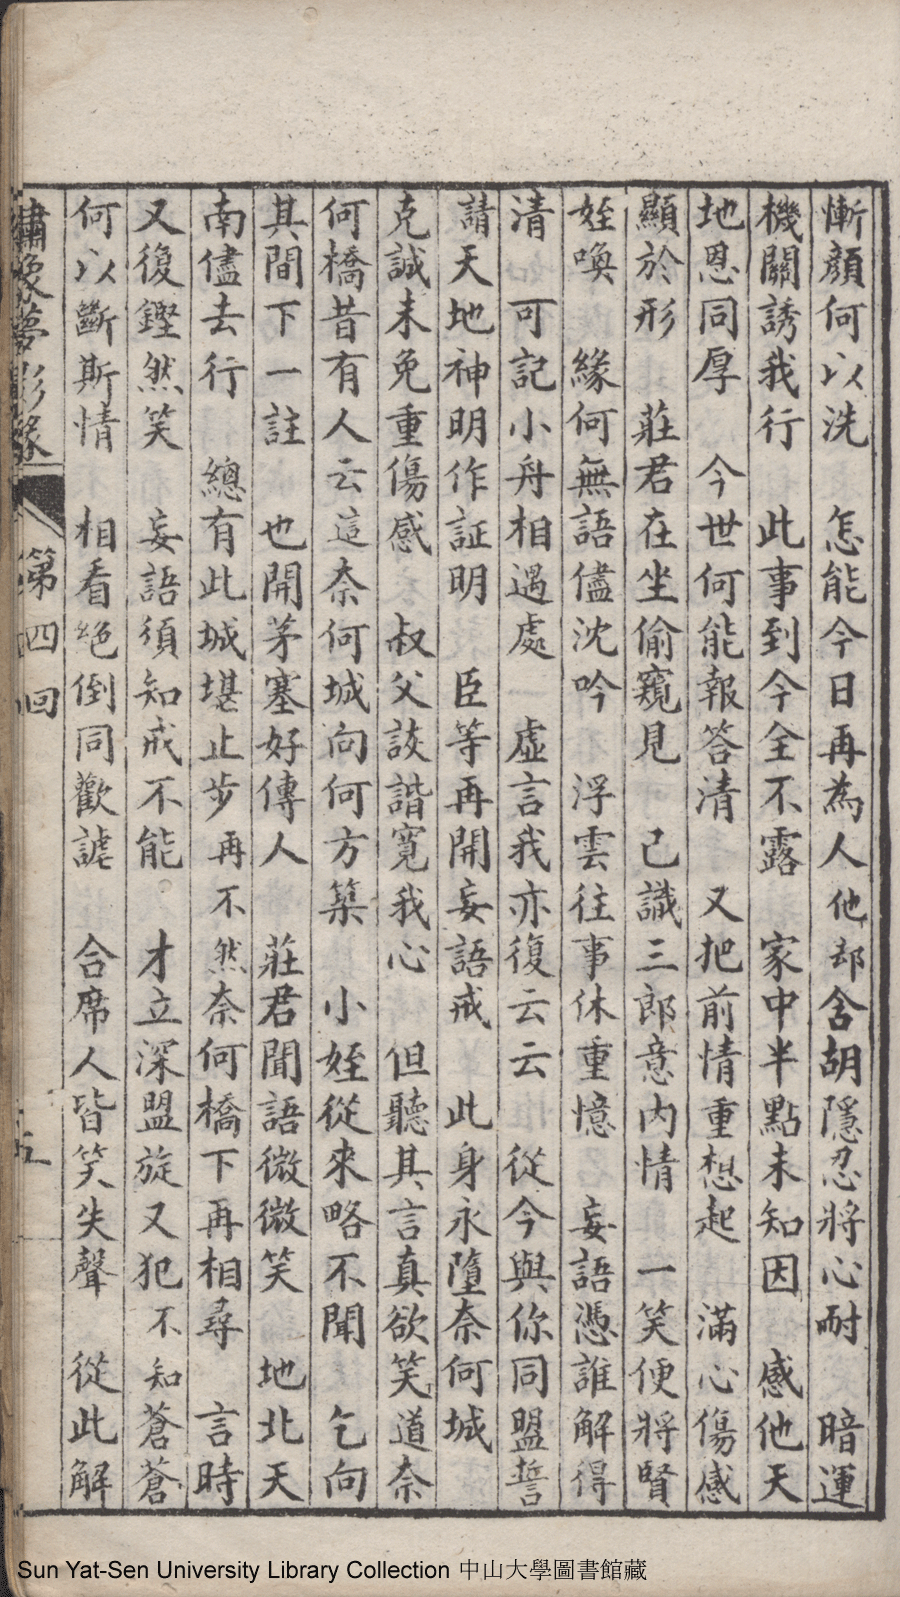 慚顔何以洗　怎能今日再為人他却含胡隱忍將心耐　暗運
機關誘我行　此事到今全不露　家中半點未知因　感他天
地恩同厚　今世何能報答清　又把前情重想起　滿心傷感
顯於形　莊君在坐偷窺見　已識三郎意内情　一笑便將賢
姪喚　緣何無語儘沈吟　浮雲往事休重憶　妄語憑誰解得
清　可記小舟相遇處　虛言我亦復云云　從今與你同盟誓
請天地神明作証明　臣等再開妄語戒　此身永墮奈何城
克誠未免重傷感　叔父談諧寬我心　但聽其言真欲笑道奈
何橋昔有人云這奈何城向何方築　小姪從來略不聞　乞向
其間下一註　也開茅塞好傳人　莊君聞語微微笑　地北天
南儘去行　總有此城堪止步再不然奈何橋下再相尋　言時
又復鏗然笑　妄語須知戒不能　才立深盟旋又犯不知蒼蒼
何以斷斯情　相看絕倒同歡謔　合席人皆笑失聲　從此解
繡像夢影緣　第四回
Sun Yat-Sen University Library Collection 中山大學圖書館藏